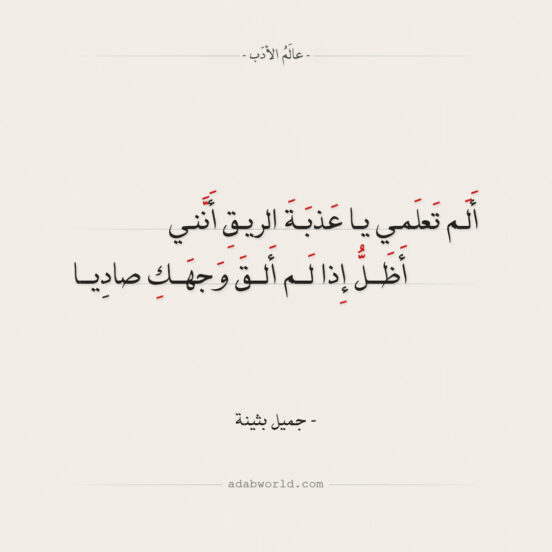 - عالَمُ الأدَب -
أَلَم تَعلَمي يا عَذبَةَ الريقِ أَنَّني
أَظَلُّ إِذا لَم أَلقَ وَجهَكِ صادِيا
- جميل بثينة
adabworld.com